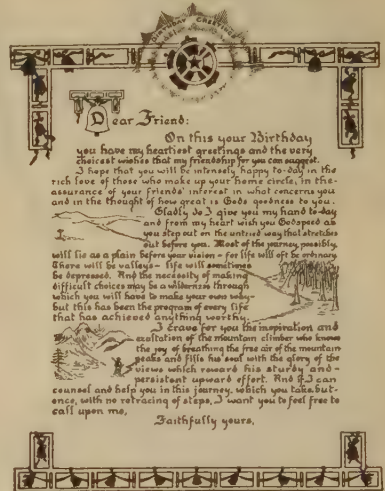 BIRTHDAY GREETINGS
Dear Friend:
On this your Birthday
you have my heartiest greetings and the very
choicest wishes that my friendship for you can suggest.
I hope that you will be intensely happy to-day in the
rich love of those who make up your home circle, in the-
assurance of your friends' interest in what concerns you
and in the thought of how great is Gods goodness to you.
Gladly do I give you my hand to-day
and from my heart wish you Godspeed as
you step out on the untried way that stretches
out before you. Most of the journey possibly,
will lie as a plain before your vision - for life will oft be ordinary.
There will be valleys - life will sometimes
be depressed. And the necessity of making
difficult choices may be a wilderness through
which you will have to make your own way-
but this has been the program of every life
that has achieved anything worthy.
I crave for you the inspiration and
exaltation of the mountain climber who knows
the joy of breathing the free air of the mountain
peaks and fills his soul with the glory of the
views which reward his sturdy and-
persistent upward effort. And if I can
counsel and help you in this journey, which you take but-
once, with no retracing of steps, I want you to feel free to
call upon me.
Faithfully yours,